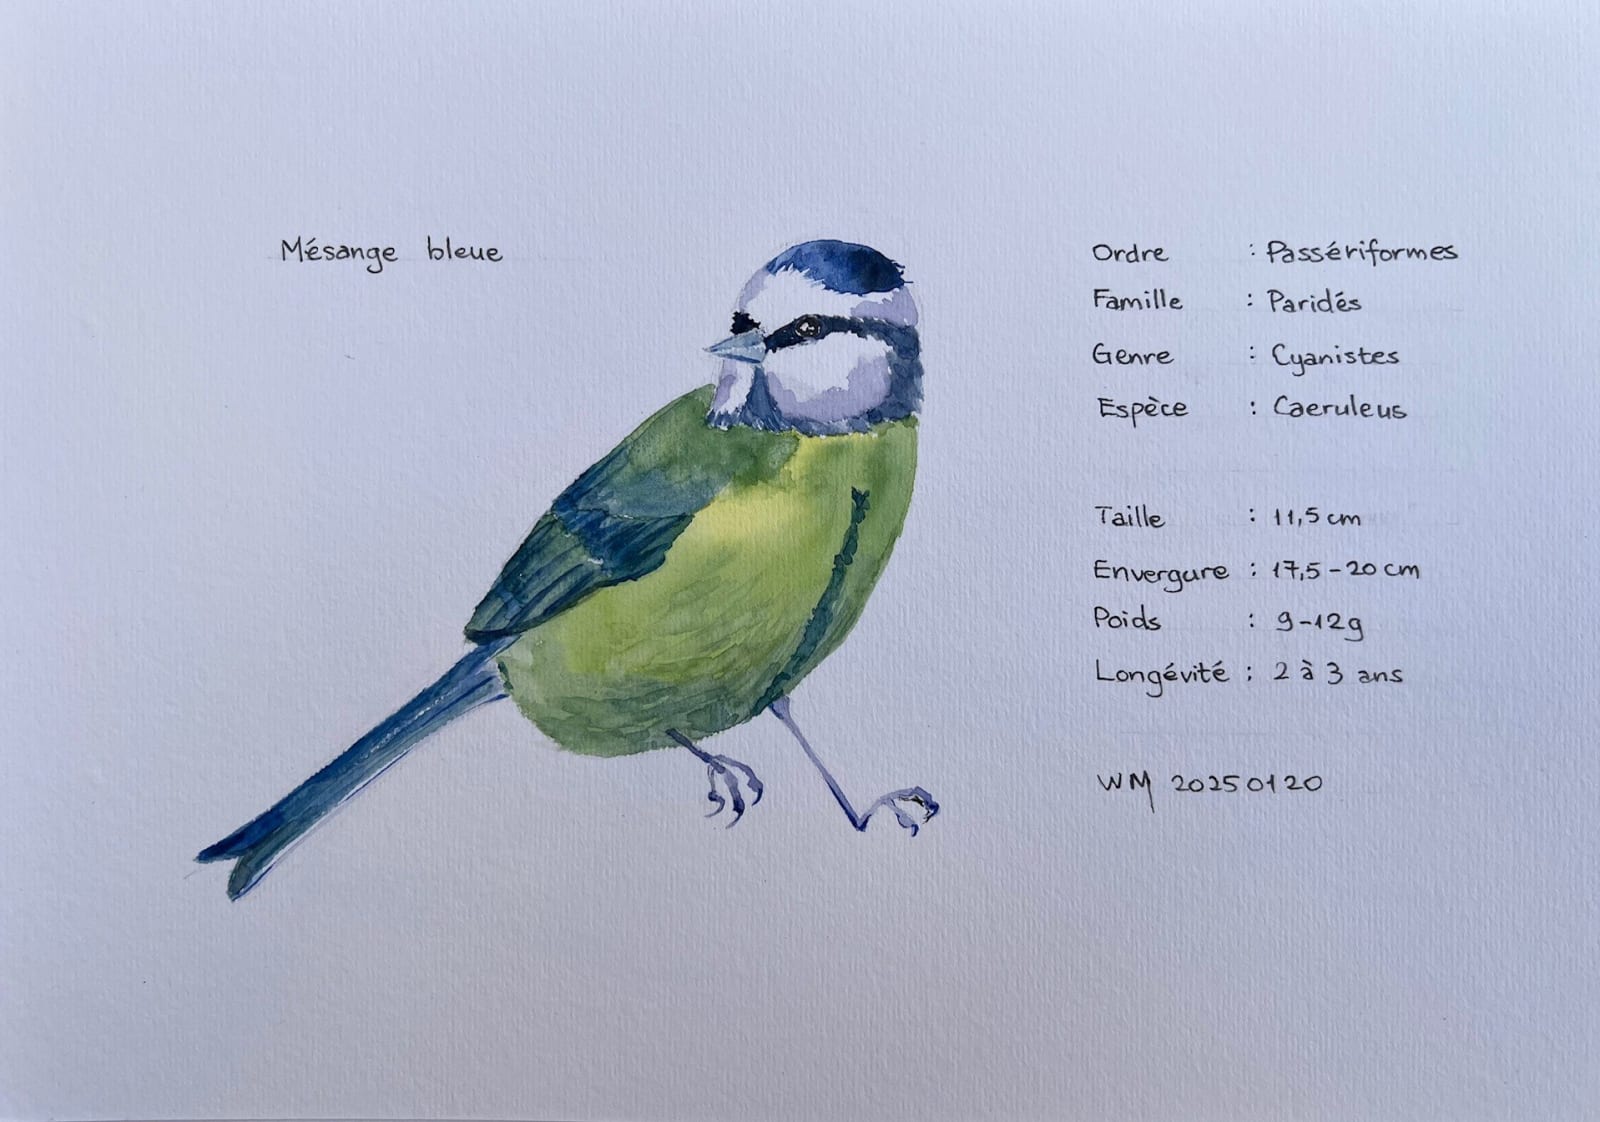 Mésange bleue
Ordre : Passériformes
Famille : Paridés
Genre : Cyanistes
Espèce : Caeruleus
Taille : 11,5 cm
Envergure : 17,5-20 cm
Poids : 9-12g
Longévité : 2 à 3 ans
WM 20250120